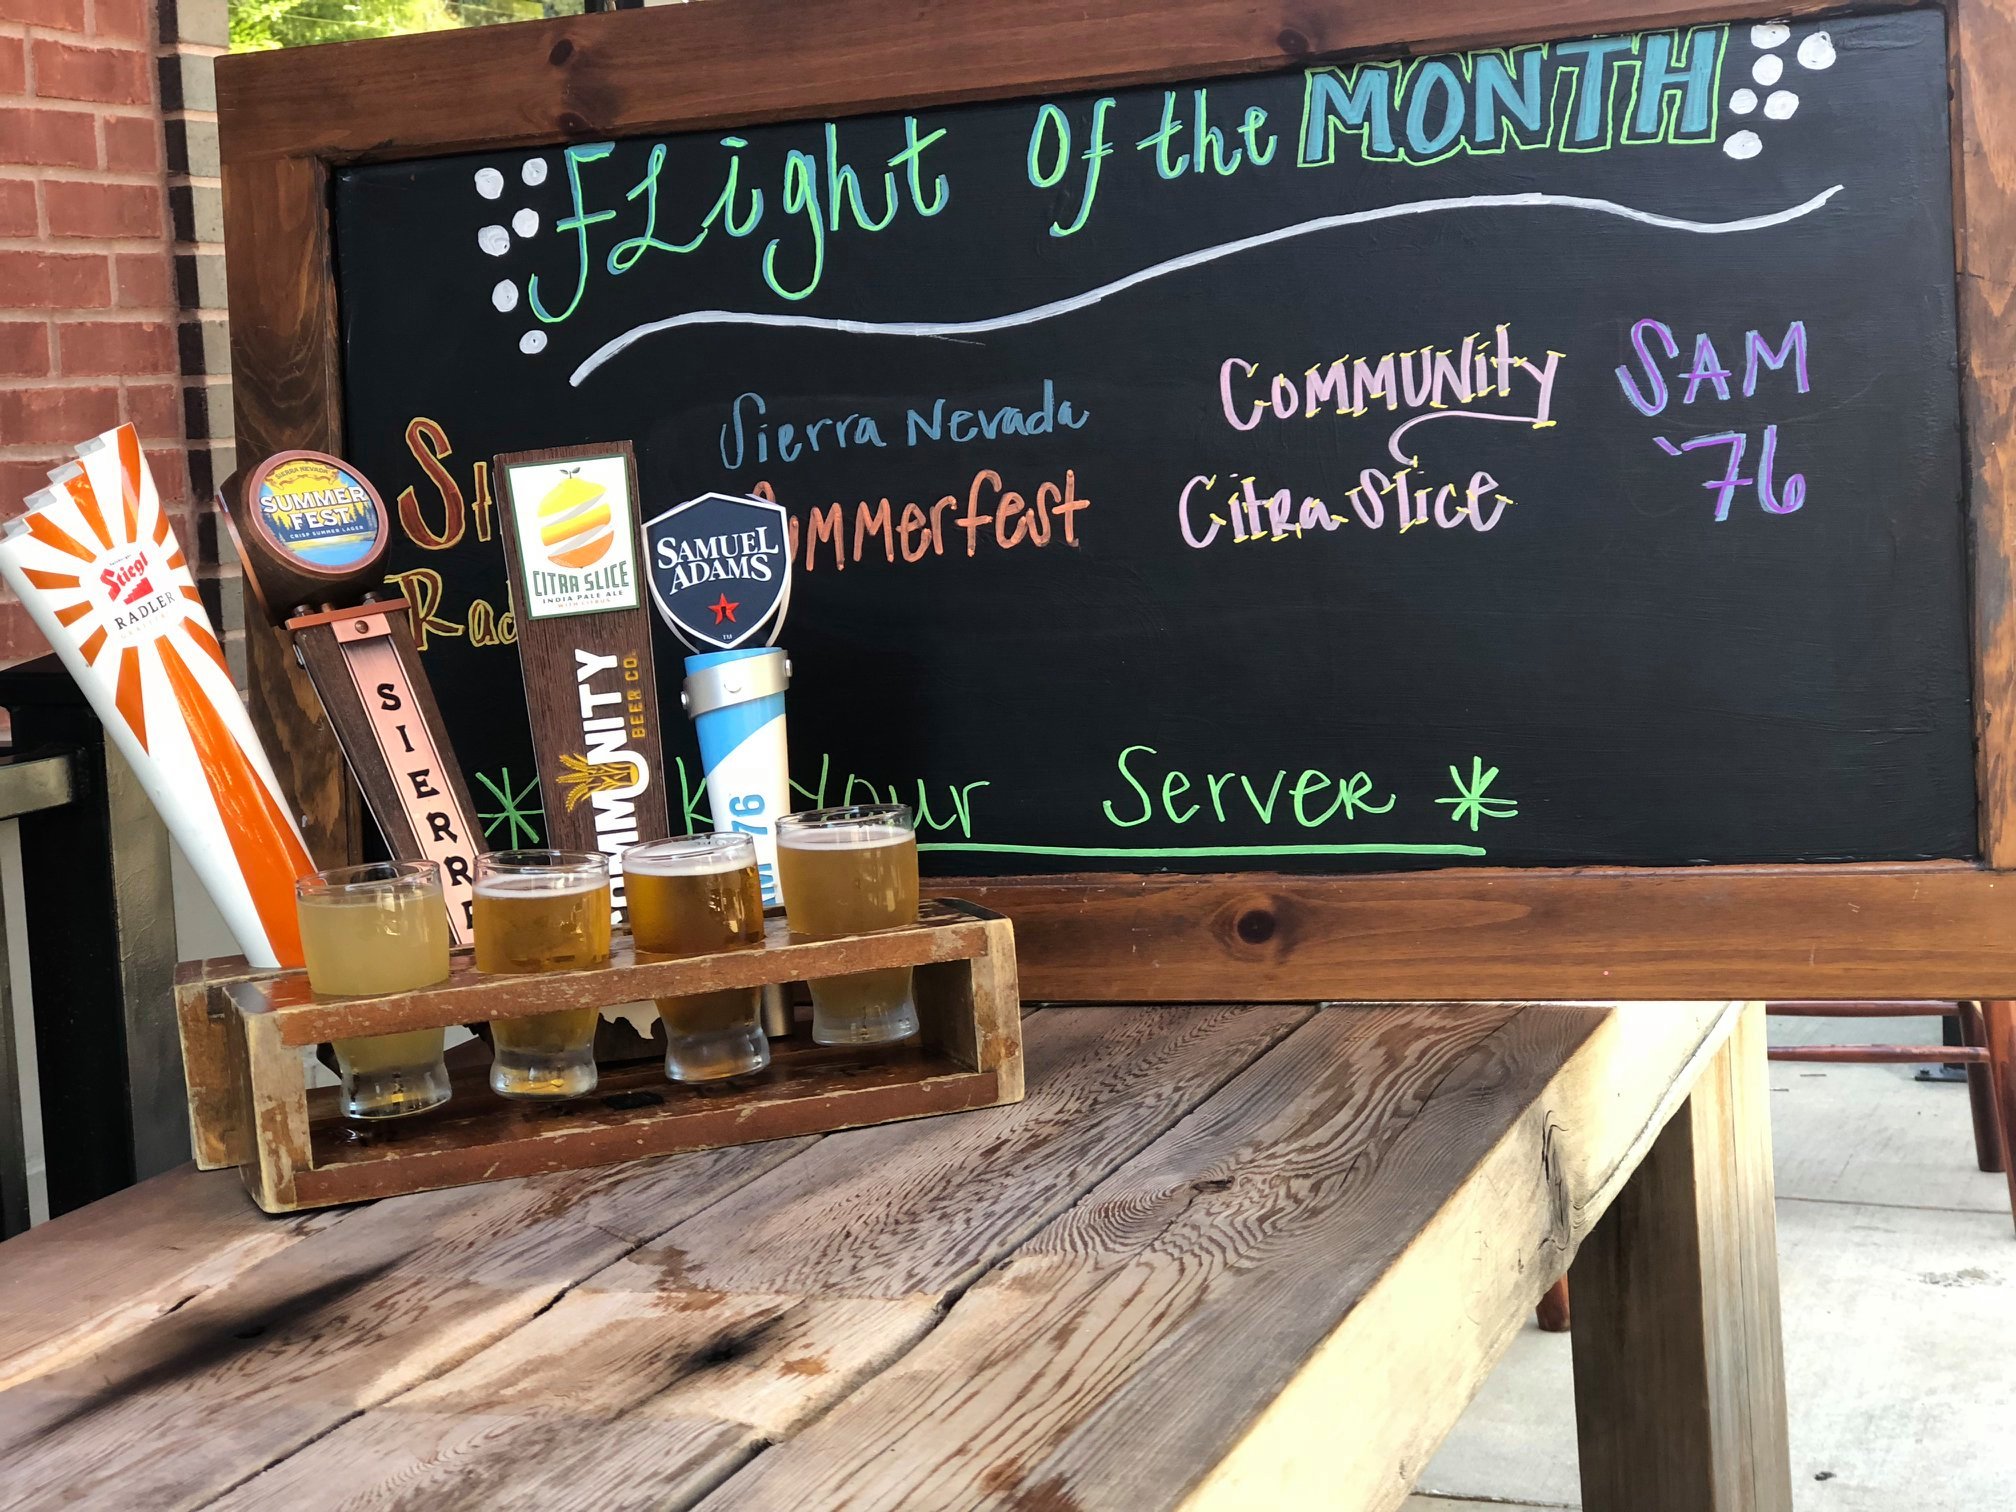 FLight Of the MONTH
Sierra Nevada
Community
SAM
Citra Slice
'76
Your Server *
Stiegl
RADLER
SIERRA NEVADA
SUMMER
FEST
CRISP SUMMER LAGER
SIERR
CITRA SLICE
INDIA PALE ALE
WITH CITRUS
COMMUNITY
BEER CO.
SAMUEL
ADAMS
TM
76